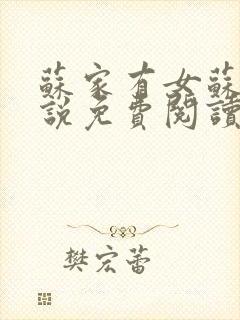 蘇家有女蘇
說免費閱讀
樊宏蕾